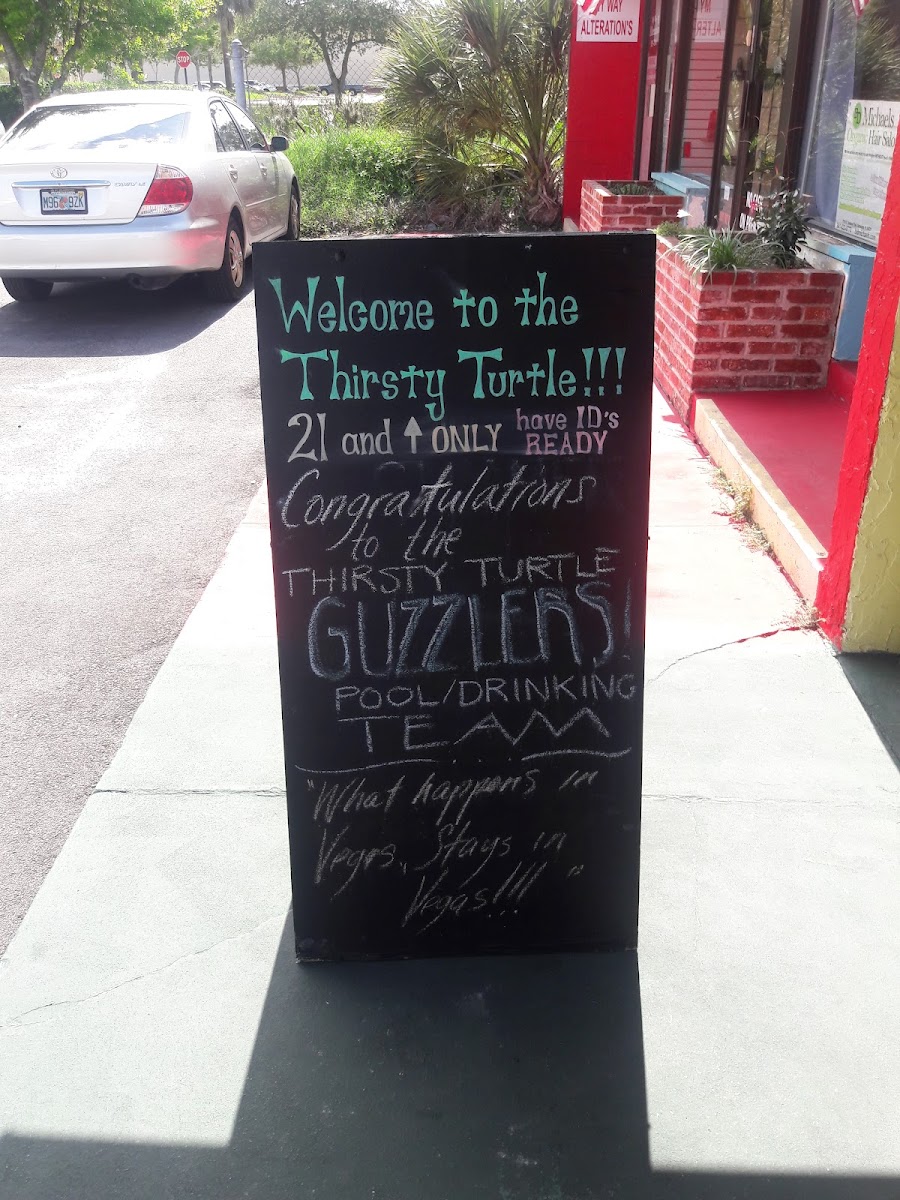 WAY
ALTERATION'S
STOP
Michaels
Hair Salon
CAMRY
Welcome to the
Thirsty Turtle!!!
21 and ↑ ONLY have ID's READY
Congratulations
to the
THIRSTY TURTLE
GUZZLERS!
POOL/DRINKING
TEAM
"What happens in
Vegas, Stays in
Vegas!!!! "